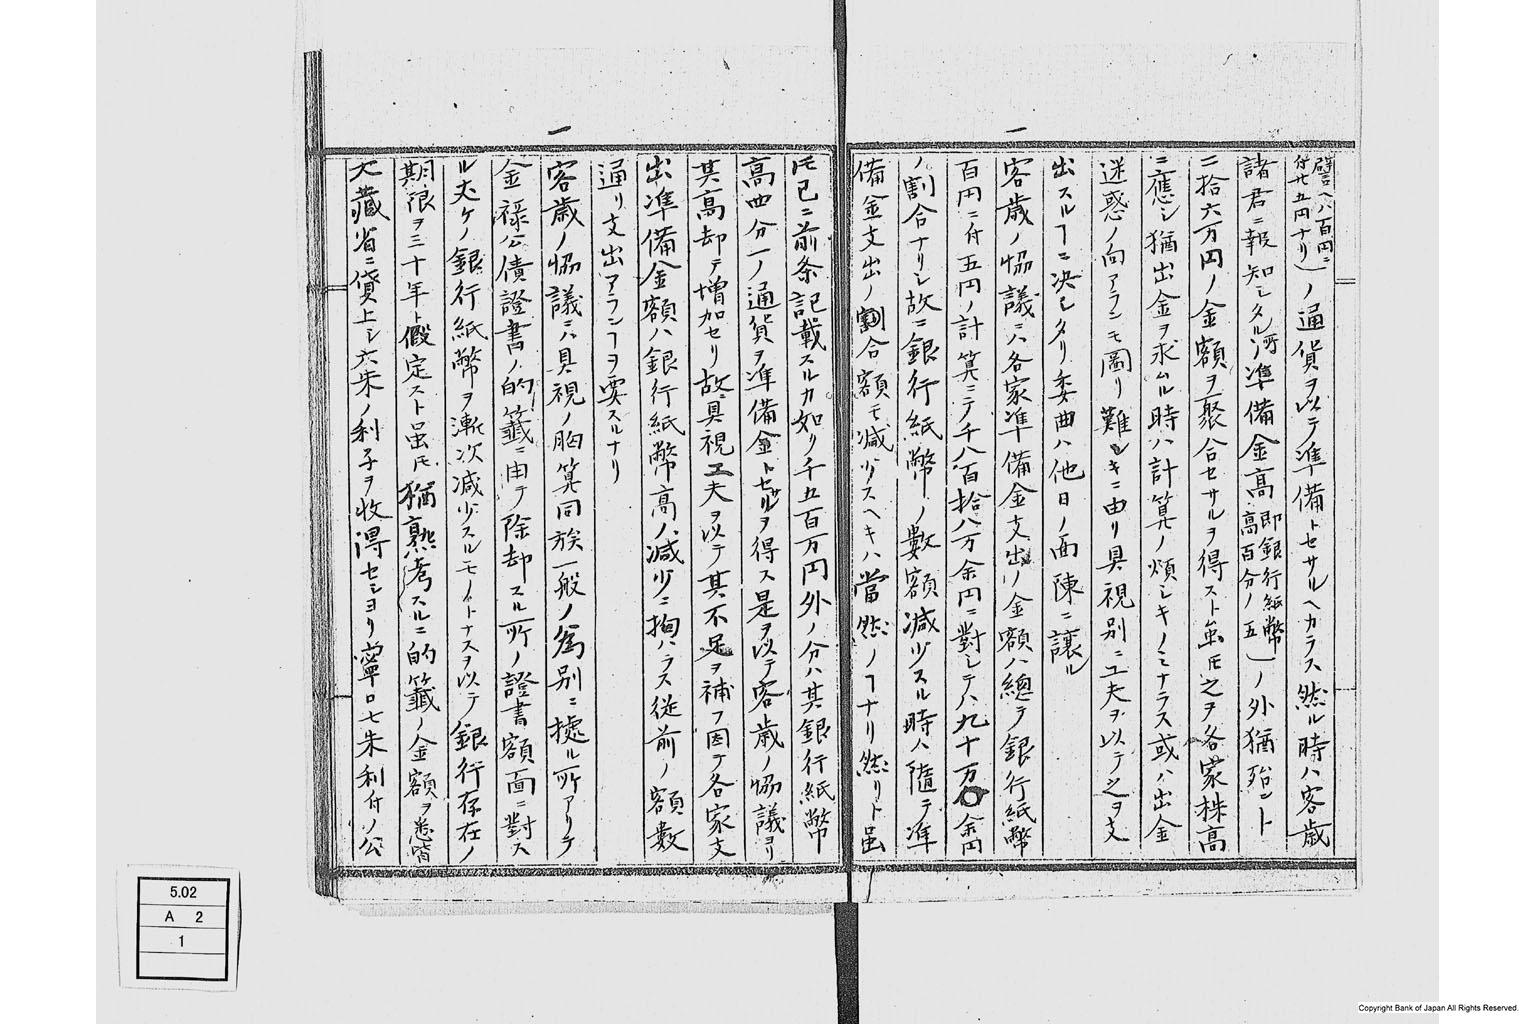 一
譬ヘハ百円ニ
付廿五円ナリ)ノ通貨ヲ以テ準備トセサルヘカラス然ル時ハ客歳
諸君ニ報知シタル所ノ準備金高(即銀行紙幣
高百分ノ五)ノ外猶殆ント
二拾六万円ノ金額ヲ聚合セサルヲ得スト虽𪜈之ヲ各家株高
ニ應シ猶出金ヲ求ムル時ハ計算ノ煩シキノミナラス或ハ出金
迷惑ノ向アランモ圖リ難シキニ由リ具視別ニ工夫ヲ以テ之ヲ支
出スルヿニ决シタリ委曲ハ他日ノ面陳ニ讓ル
一
客歳ノ協議ニハ各家準備金支出ノ金額ハ總テ銀行紙幣
百円ニ付五円ノ計算ニテ千八百拾八万余円ニ對シテハ九十万余円
ノ割合ナリシ故ニ銀行紙幣ノ數額减少スル時ハ隨テ準
備金支出ノ割合額モ减少スヘキハ當然ノヿナリ然リト虽
𪜈已ニ前条記載スルカ如リ千五百万円外ノ分ハ其銀行紙幣
高四分一ノ通貨ヲ準備金トセサルヲ得ス是ヲ以テ客歳ノ協議ヨリ
其高却テ増加セリ故ニ具視工夫ヲ以テ其不足ヲ補フ因テ各家支
出準備金額ハ銀行紙幣高ノ减少ニ拘ハラス従前ノ額數
通リ支出アランヿヲ要スルナリ
一
客歳ノ協議ニハ具視ノ胸算同族一般ノ為別ニ據ル所アリテ
金禄公債證書ノ的籤ニ由テ除却スル所ノ證書額面ニ對ス
ル丈ケノ銀行紙幣ヲ漸次减少スルモノトナスヲ以テ銀行存在ノ
期限ヲ三十年ト假定スト虽𪜈猶熟考スルニ的籤ノ金額ヲ悉皆
大藏省ニ貸上シ六朱ノ利子ヲ收得セシヨリ寧ロ七朱利付ノ公
5.02
A 2
1
Copyright Bank of Japan All Rights Reserved.